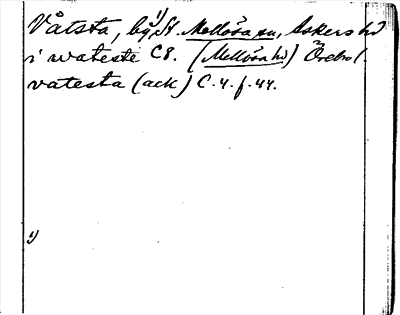 Våtsta, by, 1) St. Mellösa sn, Askers hd
i wateste C8. (Mellösa hd) Örebro l.
vatesta (ack) C. 4. f. 44.
1)